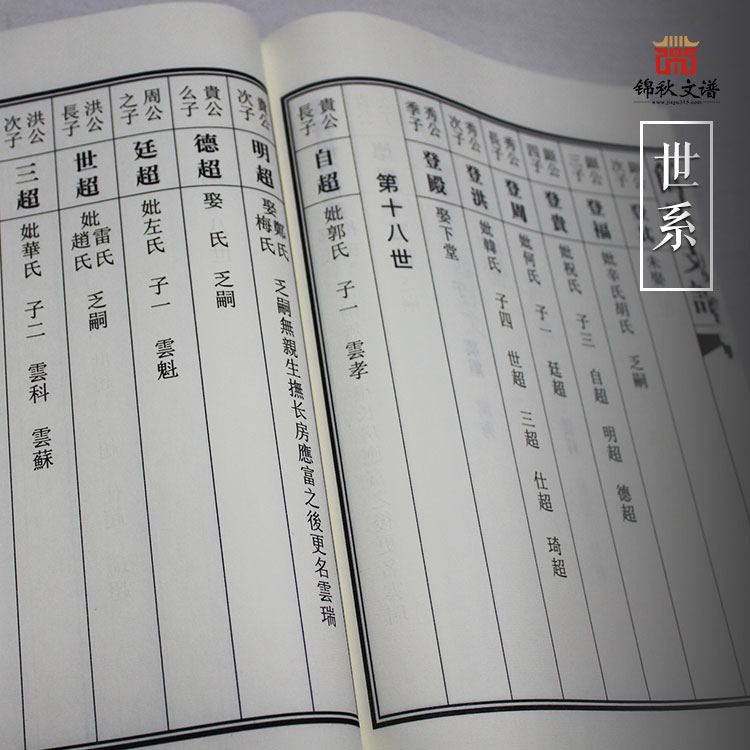 锦秋文谱
www.jiapu315.com
世系
次子 未娶
顯公三子 登福 妣辛氏胡氏 乏嗣
顯公四子 登貴 妣祝氏 子三 自超 明超 德超
秀公長子 登周 妣何氏 子一 廷超
秀公次子 登洪 妣韓氏 子四 世超 三超 仕超 琦超
秀公季子 登殿 娶下堂
第十八世
貴公長子 自超 妣郭氏 子一 雲孝
貴公次子 明超 娶鄭氏梅氏 乏嗣無親生撫长房應富之後更名雲瑞
貴公么子 德超 娶 氏 乏嗣
周公之子 廷超 妣左氏 子一 雲魁
洪公長子 世超 妣雷氏趙氏 乏嗣
洪公次子 三超 妣華氏 子二 雲科 雲蘇